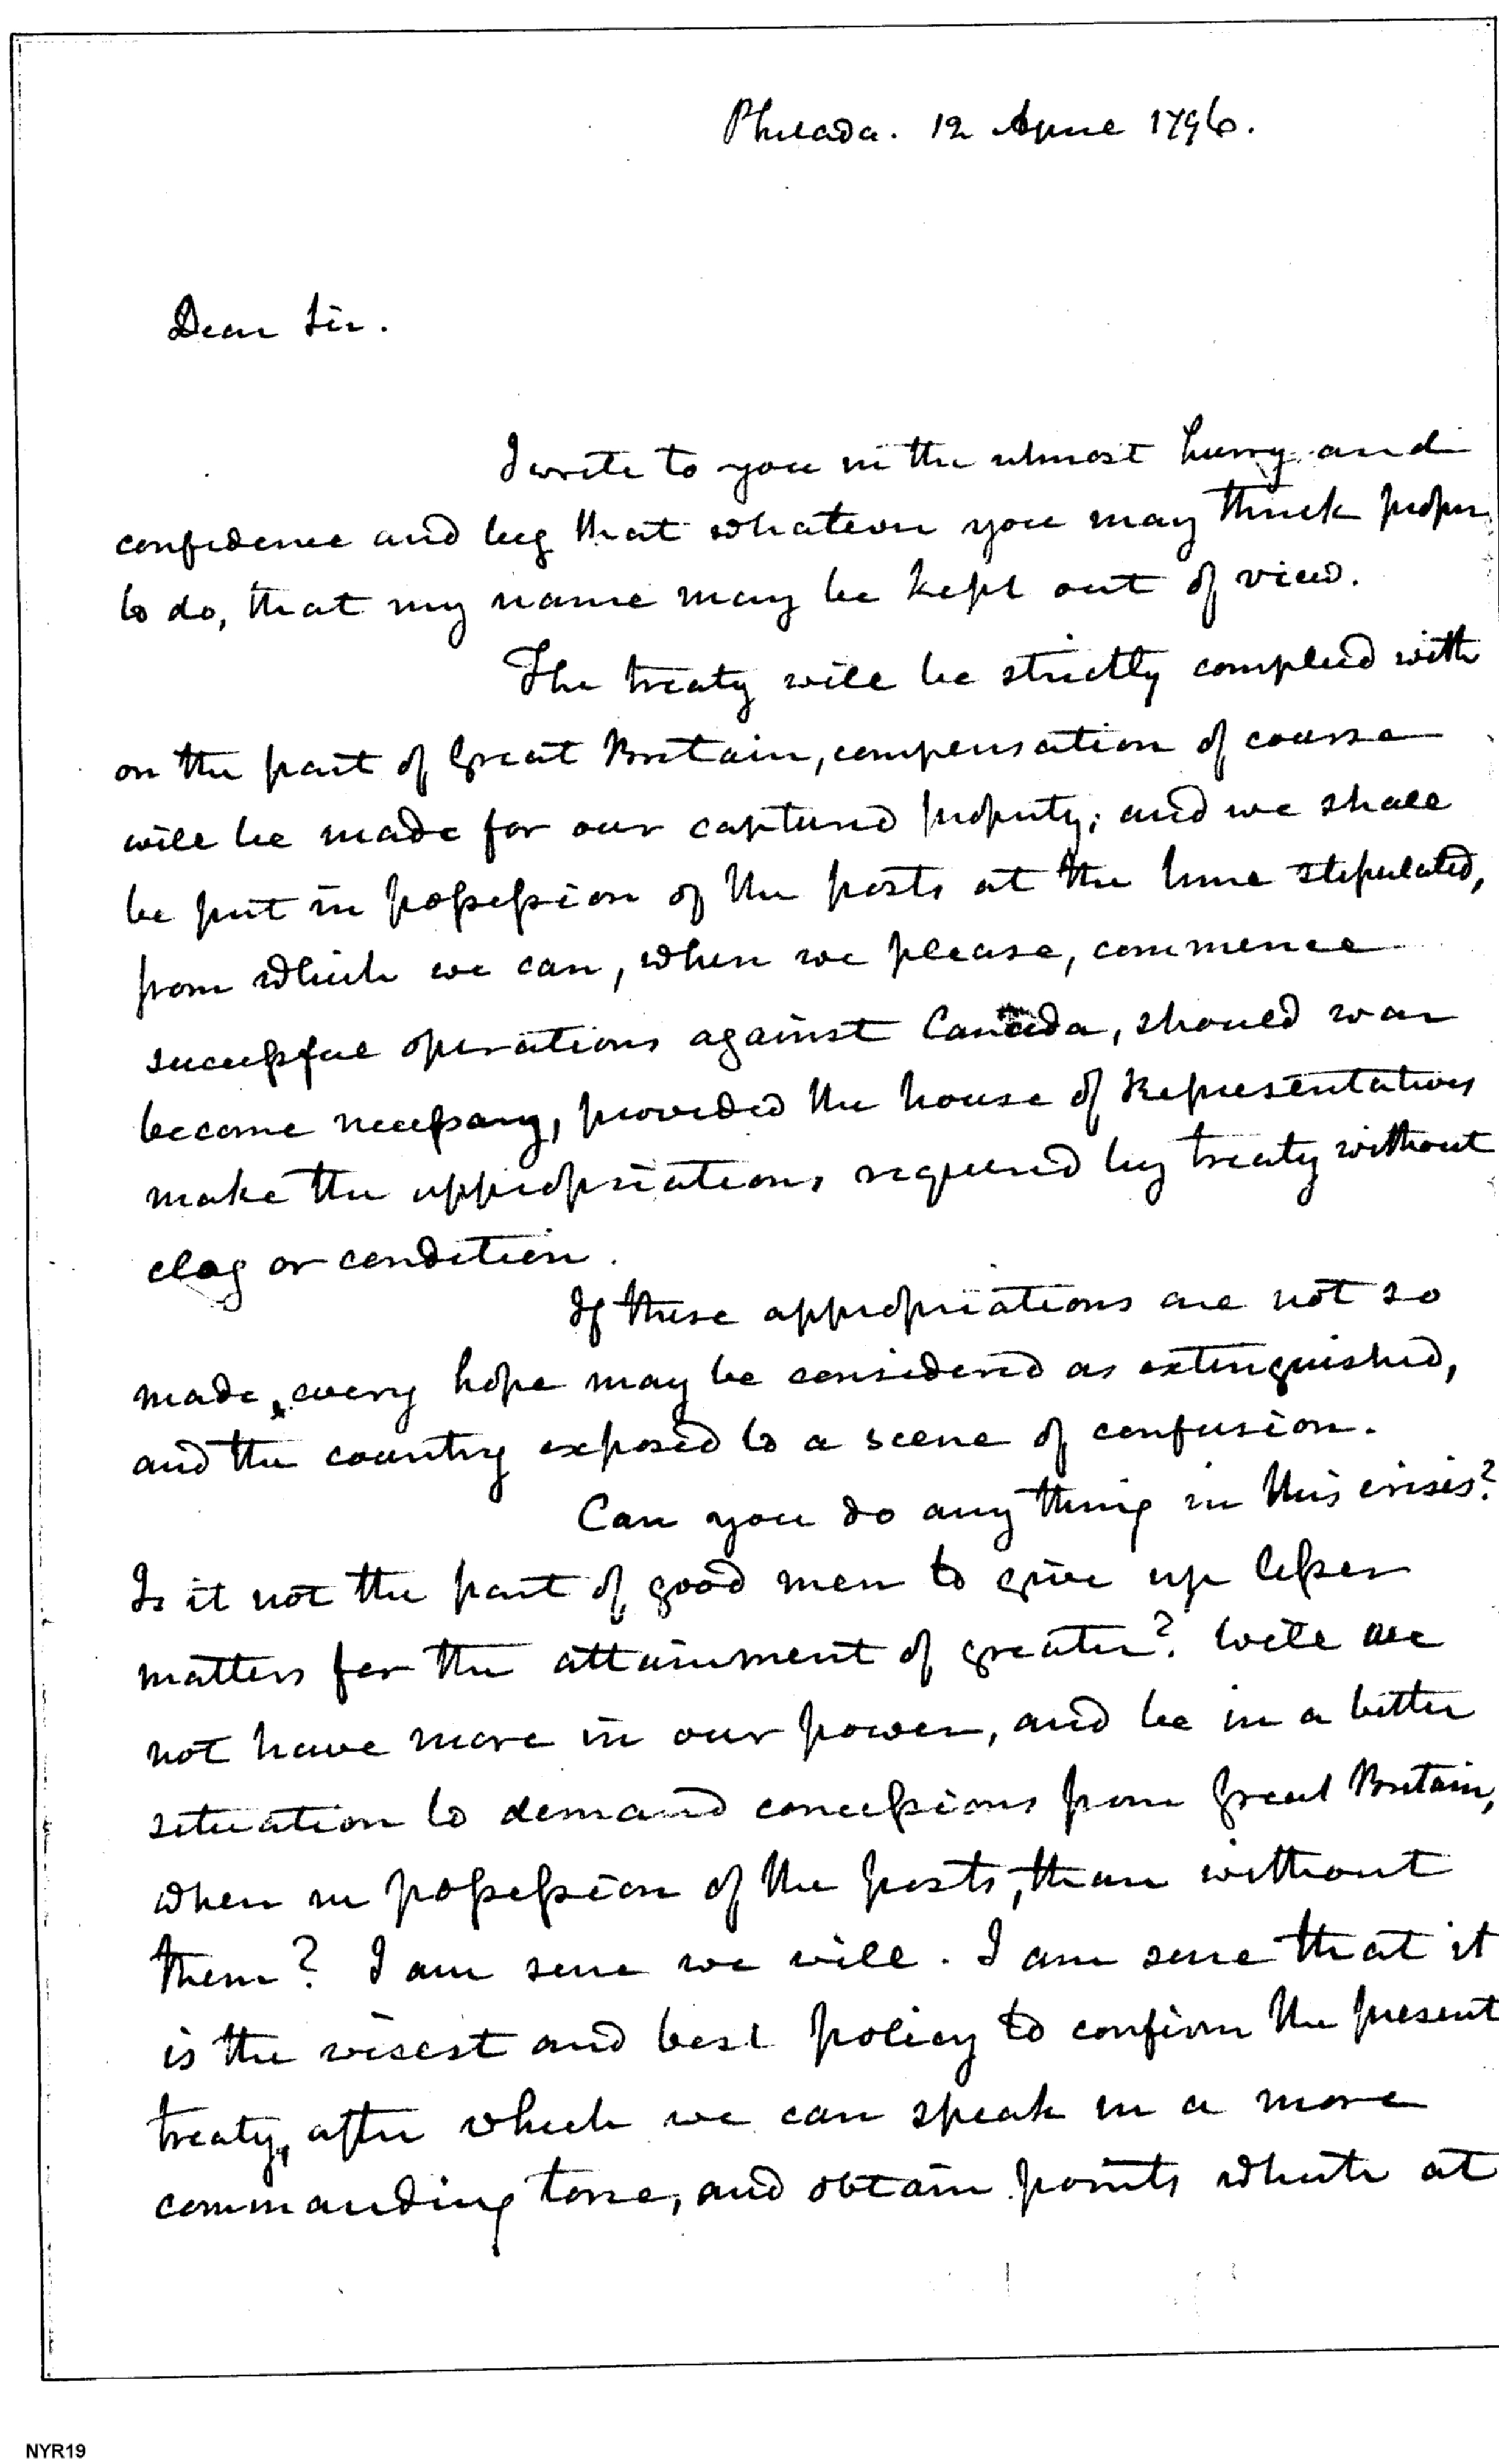 Philada. 12 April 1796.
Dear Sir.
I write to you in the utmost hurry and
confidence and beg that whatever you may think proper
to do, that my name may be kept out of view.
The treaty will be strictly complied with
on the part of Great Britain, compensation of course
will be made for our captured property; and we shall
be put in possession of the posts at the time stipulated,
from which we can, when we please, commence
successful operations against Canada, should war
become necessary, provided the house of Representatives
make the appropriations required by treaty without
clog or condition.
If these appropriations are not so
made, every hope may be considered as extinguished,
and the country exposed to a scene of confusion.
Can you do any thing in this crisis?
Is it not the part of good men to give up lesser
matters for the attainment of greater? Will we
not have more in our power, and be in a better
situation to demand concessions from Great Britain,
when in possession of the posts, than without
them? I am sure we will. I am sure that it
is the wisest and best policy to confirm the present
treaty, after which we can speak in a more
commanding tone, and obtain points which at
NYR19